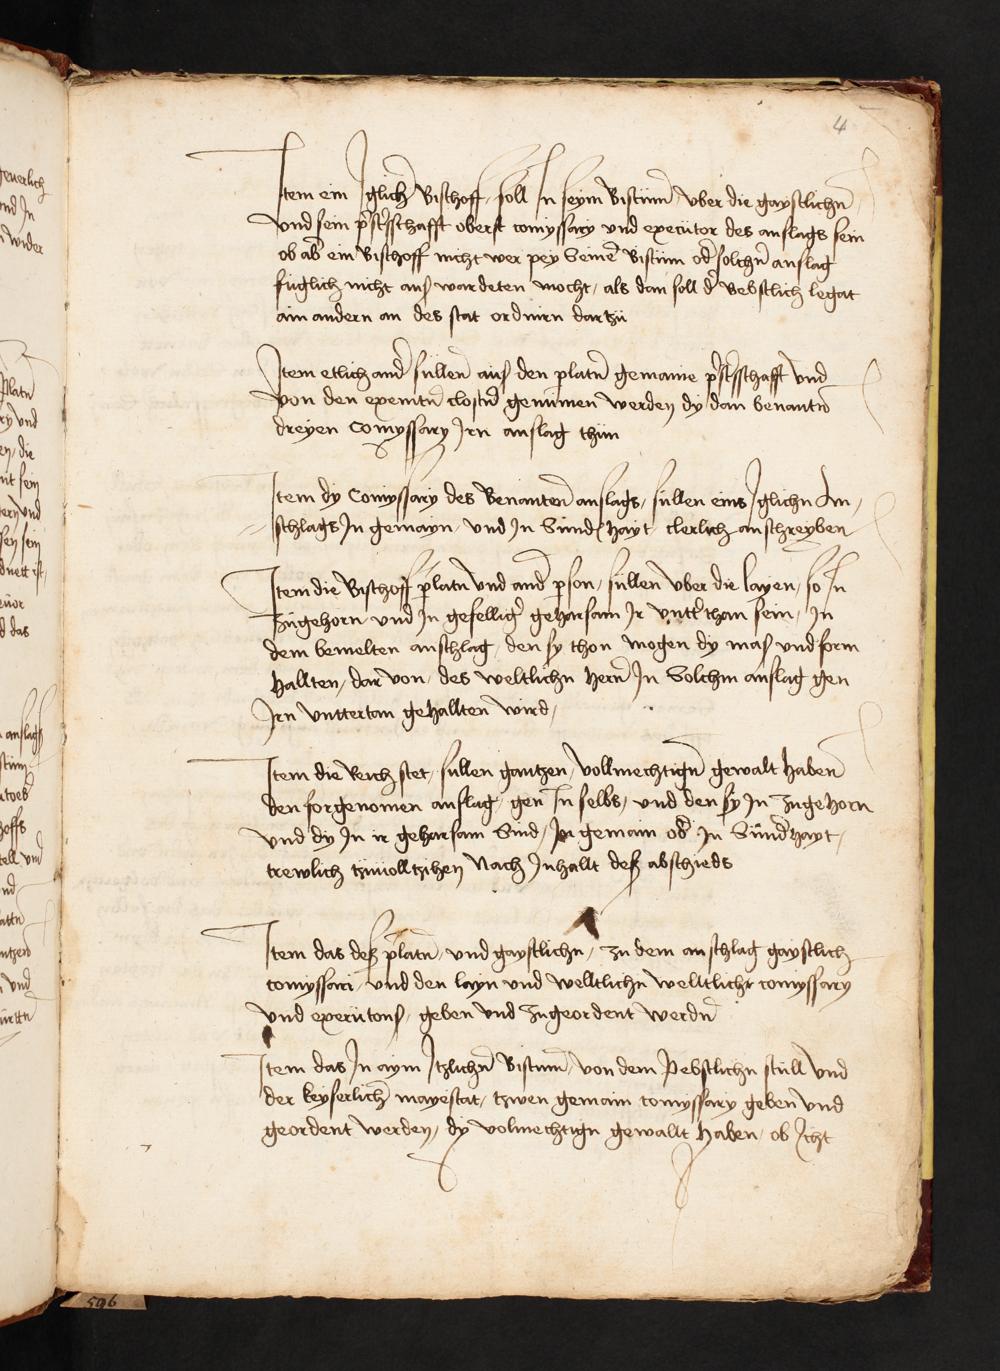 4
Item ein Iglicher Bischoff soll In seym Bistumb vber die gaystlichen
vnd sein priesterschafft oberst comyssary vnd executor des anslags sein
ob aber ein Bischoff nicht wer pey seinem Bistum oder solchen anslag
füglich nicht aus wardeten mocht, als dan soll der Bebstlich legat
ain andern an des stat ordnirn dartzü
Item etlich ander süllen aus den platn gemaine priesterschafft vnd
von den exemtn closter genümen werden dy dan benantn
dreyen Comyssary Irn anslag thün
Item dy Comyssary des Benanten anslags, sullen eins Iglichn An,
schlags In gemayn, vnd In Sunderhayt clerlich anschreyben
Item die Bischoff platn vnd ander person, süllen vber die layen, so In
zugehorn vnd In gefelliger gehorsam Ir vntterthan sein, In
dem bemelten anschlag, den sy thon mogen dy mas vnd form
hallten, dar von, des weltlichn hern In Solchm anslag gen
Irn vnttertan gehallten wird,
Item die Reich stet, süllen gantzen, vollmechtign gewalt haben
den forgenomen anslag, gen In selbs, vnd den sy In zugehorn
vnd dy In ir gehorsam Sind, In gemain oder In Sünderhayt,
trewlich tzuuolltzihen Nach Inhallt deß abschieds
Item das deß platn, vnd gaystlichn, zu dem anschlag gaystlich
comyssari, vnd den layn vnd welltlichn welltlichr comyssary
vnd executons, geben vnd zugeordent werdn
Item das In aym Itzlichn Bistum, von dem Pebstlichn stull vnd
der keyserlich mayestat, tzwen gemain comyssary geben vnd
geordent werden, dy volmechtign gewallt haben, ob Icht
596